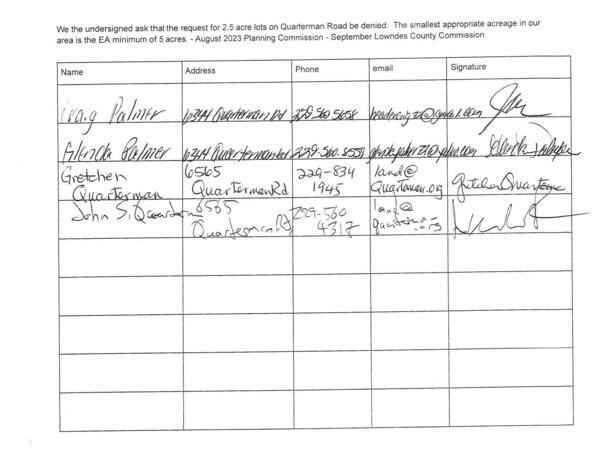 We the undersigned ask that the request for 2.5 acre lots on Quarterman Road be denied. The smallest appropriate acreage in our
area is the EA minimum of 5 acres. - August 2023 Planning Commission - September Lowndes County Commission
Name Address Phone email Signature
Craig Palmer Quarterman Rd 229.560.5658
Glenda Palmer
Gretchen 6565 229-834 land@
Quarterman Quarterman Rd 1945 Quarterman.org Gretchen Quarterman
John S. Quarterman 6565 229-560 land@
Quarterman Rd 4317 quarterman
.org